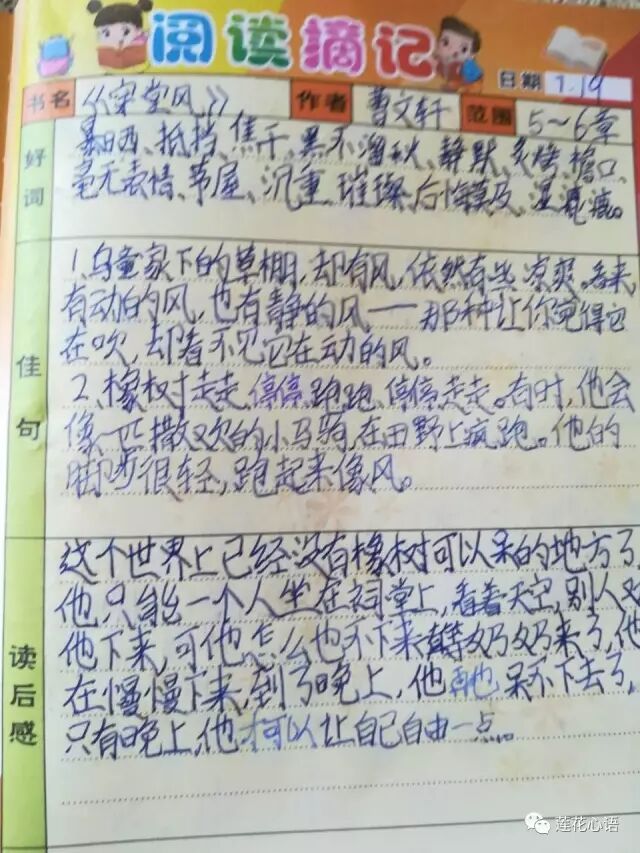 阅读摘记
日期 7.19
书名 《穿堂风》 作者 曹文轩 范围 5~6章
好词
暴晒、抵挡、焦干、黑不溜秋、静默、炙烤、檐口、
毫无表情、茅屋、沉重、璀璨、后悔莫及、湿漉漉。
佳句
1、乌童家下的草棚,却有风,依然有些凉爽。看来,
有动的风,也有静的风——那种让你觉得它
在吹,却看不见它在动的风。
2、橡树走走、停停、跑跑、停停、走走。有时,他会
像一匹撒欢的小马驹,在田野上疯跑。他的
脚步很轻,跑起来像风。
读后感
这个世界上已经没有橡树可以呆的地方了,
他只能一个人坐在祠堂上,看着天空,别人
他下来,可他怎么也不下来,等奶奶来了,他
在慢慢下来,到了晚上,他再也呆不下去了,
只有晚上,他才可以让自己自由一点。
莲花心语